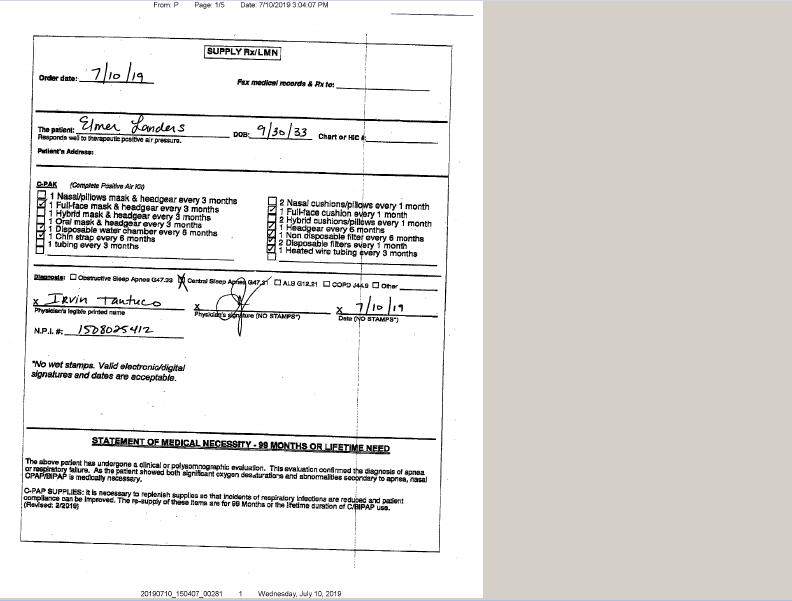 From: P Page: 1/5 Date: 7/10/2019 3:04:07 PM
SUPPLY Rx/LMN
Order date: 7/10/19 Fax medical records & Rx to:
The patient: Elmer Landers DOB: 9/30/33 Chart or HIC #:
Responds well to therapeutic positive air pressure.
Patient's Address:
C-PAK (Complete Positive Air Kit)
1 Nasal/pillows mask & headgear every 3 months
1 Full-face mask & headgear every 3 months
1 Hybrid mask & headgear every 3 months
1 Oral mask & headgear every 3 months
1 Disposable water chamber every 6 months
1 Chin strap every 6 months
1 tubing every 3 months
2 Nasal cushions/pillows every 1 month
1 Full-face cushion every 1 month
2 Hybrid cushions/pillows every 1 month
1 Headgear every 6 months
1 Non disposable filter every 6 months
2 Disposable filters every 1 month
1 Heated wire tubing every 3 months
Diagnosis: Obstructive Sleep Apnea G47.33 Central Sleep Apnea G47.31 ALS G12.21 COPD J44.9 Other
X Irvin Tantuco X X 7/10/19
Physician's legible printed name Physician's signature (NO STAMPS*) Date (NO STAMPS*)
N.P.I. #: 1508025412
*No wet stamps. Valid electronic/digital
signatures and dates are acceptable.
STATEMENT OF MEDICAL NECESSITY - 99 MONTHS OR LIFETIME NEED
The above patient has undergone a clinical or polysomnographic evaluation. This evaluation confirmed the diagnosis of apnea
or respiratory failure. As the patient showed both significant oxygen desaturations and abnormalities secondary to apnea, nasal
CPAP/BIPAP is medically necessary.
C-PAP SUPPLIES: It is necessary to replenish supplies so that incidents of respiratory infections are reduced and patient
compliance can be improved. The re-supply of these items are for 99 Months or the lifetime duration of C/BIPAP use.
(Revised: 2/2019)
20190710_150407_00281 1 Wednesday, July 10, 2019